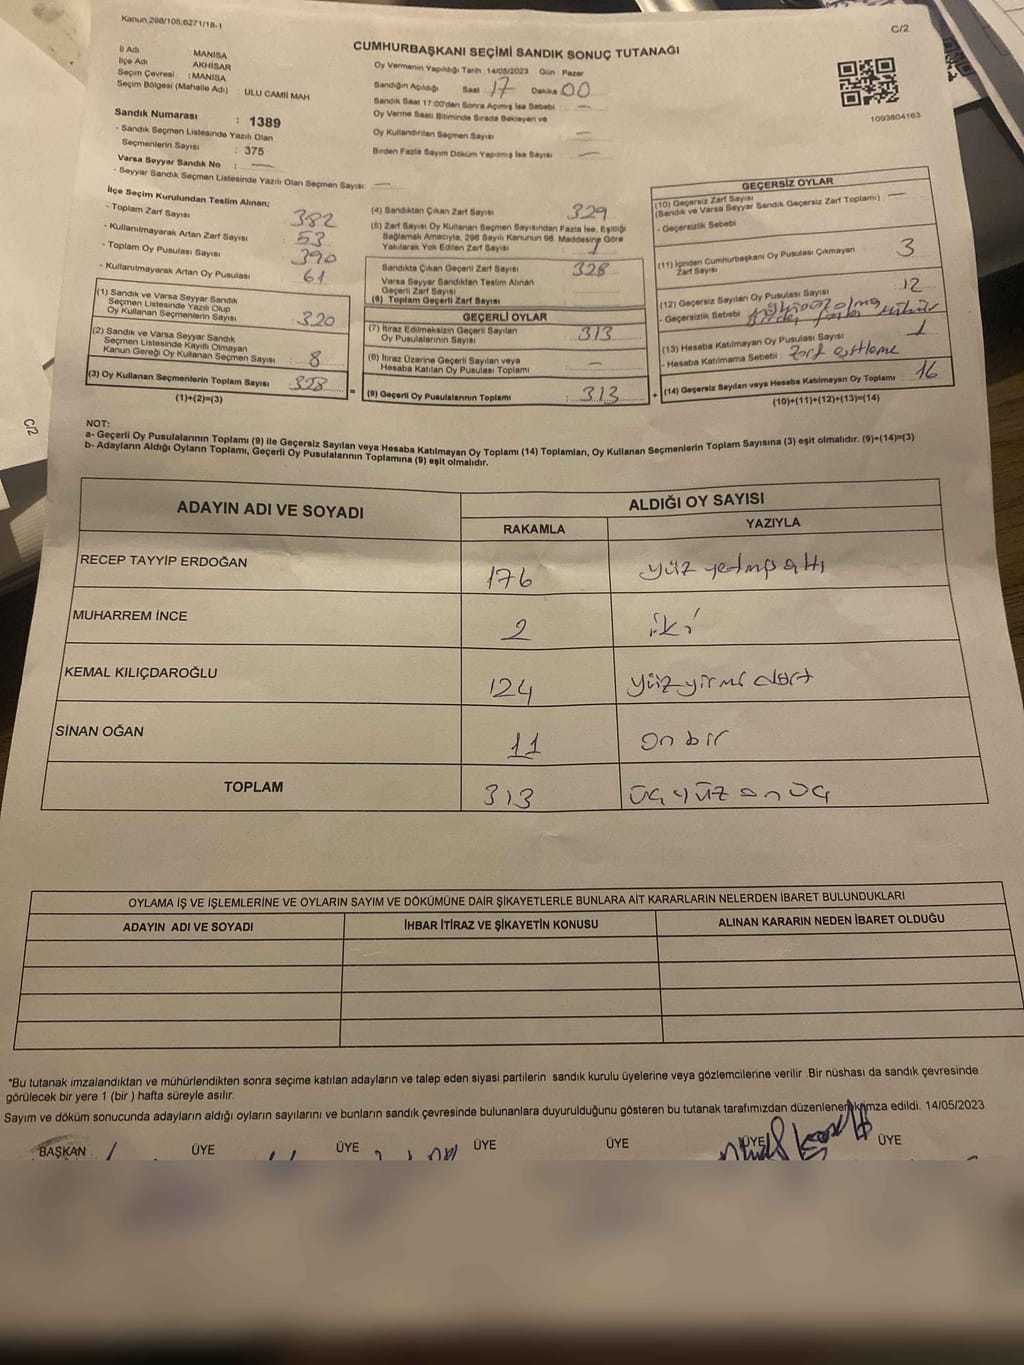 Kanun.298/105,6271/18-1
C/2
CUMHURBAŞKANI SEÇİMİ SANDIK SONUÇ TUTANAĞI
İl Adı : MANİSA
İlçe Adı : AKHİSAR
Seçim Çevresi : MANİSA
Seçim Bölgesi (Mahalle Adı) : ULU CAMİİ MAH
Sandık Numarası : 1389
- Sandık Seçmen Listesinde Yazılı Olan
Seçmenlerin Sayısı : 375
Varsa Seyyar Sandık No : —
- Seyyar Sandık Seçmen Listesinde Yazılı Olan Seçmen Sayısı —
Oy Vermenin Yapıldığı Tarih :14/05/2023 Gün Pazar
Sandığın Açıldığı Saat 17 Dakika 00
Sandık Saat 17:00'dan Sonra Açılmış İse Sebebi —
Oy Verme Saati Bitiminde Sırada Bekleyen ve
Oy Kullandırılan Seçmen Sayısı —
Birden Fazla Sayım Döküm Yapılmış İse Sayısı —
1093804163
İlçe Seçim Kurulundan Teslim Alınan;
- Toplam Zarf Sayısı 382
- Kullanılmayarak Artan Zarf Sayısı 53
- Toplam Oy Pusulası Sayısı 390
- Kullanılmayarak Artan Oy Pusulası 61
(1) Sandık ve Varsa Seyyar Sandık
Seçmen Listesinde Yazılı Olup
Oy Kullanan Seçmenlerin Sayısı 320
(2) Sandık ve Varsa Seyyar Sandık
Seçmen Listesinde Kayıtlı Olmayan
Kanun Gereği Oy Kullanan Seçmen Sayısı : 8
(3) Oy Kullanan Seçmenlerin Toplam Sayısı 328
(1)+(2)=(3)
(4) Sandıktan Çıkan Zarf Sayısı 329
(5) Zarf Sayısı Oy Kullanan Seçmen Sayısından Fazla İse, Eşitliği
Sağlamak Amacıyla, 298 Sayılı Kanunun 98. Maddesine Göre
Yakılarak Yok Edilen Zarf Sayısı 1
Sandıkta Çıkan Geçerli Zarf Sayısı 328
Varsa Seyyar Sandıktan Teslim Alınan
Geçerli Zarf Sayısı
(6) Toplam Geçerli Zarf Sayısı
GEÇERLİ OYLAR
(7) İtiraz Edilmeksizin Geçerli Sayılan
Oy Pusulalarının Sayısı 313
(8) İtiraz Üzerine Geçerli Sayılan veya
Hesaba Katılan Oy Pusulası Toplamı —
(9) Geçerli Oy Pusulalarının Toplamı 313
GEÇERSİZ OYLAR
(10) Geçersiz Zarf Sayısı
(Sandık ve Varsa Seyyar Sandık Geçersiz Zarf Toplamı) —
- Geçersizlik Sebebi
(11) İçinden Cumhurbaşkanı Oy Pusulası Çıkmayan
Zarf Sayısı 3
(12) Geçersiz Sayılan Oy Pusulası Sayısı 12
- Geçersizlik Sebebi
(13) Hesaba Katılmayan Oy Pusulası Sayısı 1
- Hesaba Katılmama Sebebi : Zarf eşitleme
(14) Geçersiz Sayılan veya Hesaba Katılmayan Oy Toplamı 16
(10)+(11)+(12)+(13)=(14)
C/2
NOT:
a- Geçerli Oy Pusulalarının Toplamı (9) ile Geçersiz Sayılan veya Hesaba Katılmayan Oy Toplamı (14) Toplamları, Oy Kullanan Seçmenlerin Toplam Sayısına (3) eşit olmalıdır. (9)+(14)=(3)
b- Adayların Aldığı Oyların Toplamı, Geçerli Oy Pusulalarının Toplamına (9) eşit olmalıdır.
ADAYIN ADI VE SOYADI
ALDIĞI OY SAYISI
RAKAMLA YAZIYLA
RECEP TAYYİP ERDOĞAN 176 yüz yetmiş altı
MUHARREM İNCE 2 iki
KEMAL KILIÇDAROĞLU 124 yüz yirmi dört
SİNAN OĞAN 11 on bir
TOPLAM 313 üç yüz on üç
OYLAMA İŞ VE İŞLEMLERİNE VE OYLARIN SAYIM VE DÖKÜMÜNE DAİR ŞİKAYETLERLE BUNLARA AİT KARARLARIN NELERDEN İBARET BULUNDUKLARI
ADAYIN ADI VE SOYADI İHBAR İTİRAZ VE ŞİKAYETİN KONUSU ALINAN KARARIN NEDEN İBARET OLDUĞU
*Bu tutanak imzalandıktan ve mühürlendikten sonra seçime katılan adayların ve talep eden siyasi partilerin sandık kurulu üyelerine veya gözlemcilerine verilir .Bir nüshası da sandık çevresinde
görülecek bir yere 1 (bir ) hafta süreyle asılır.
Sayım ve döküm sonucunda adayların aldığı oyların sayılarını ve bunların sandık çevresinde bulunanlara duyurulduğunu gösteren bu tutanak tarafımızdan düzenlenerek imza edildi. 14/05/2023
BAŞKAN ÜYE ÜYE ÜYE ÜYE ÜYE ÜYE